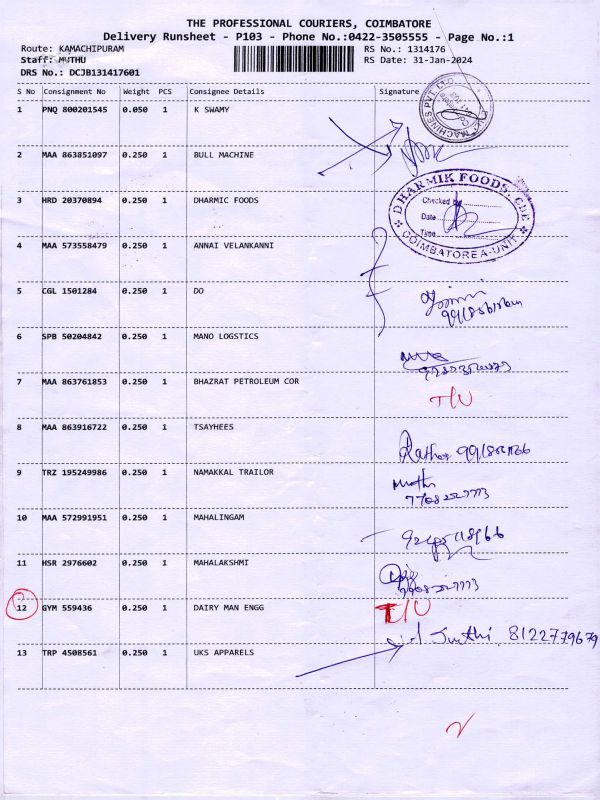 THE PROFESSIONAL COURIERS, COIMBATORE
Delivery Runsheet - P103 - Phone No.:0422-3505555 - Page No.:1
Route: KAMACHIPURAM RS No.: 1314176
Staff: MUTHU RS Date: 31-Jan-2024
DRS No.: DCJB131417601
S No Consignment No Weight PCS Consignee Details Signature
1 PNQ 800201545 0.050 1 K SWAMY
MACHINES PVT LTD
2 MAA 863851097 0.250 1 BULL MACHINE
3 HRD 20370894 0.250 1 DHARMIC FOODS
DHARMIK FOODS, CBE
Checked by
Date
Time
COIMBATORE A-UNIT
4 MAA 573558479 0.250 1 ANNAI VELANKANNI
5 CGL 1501284 0.250 1 DO
6 SPB 50204842 0.250 1 MANO LOGSTICS
7 MAA 863761853 0.250 1 BHAZRAT PETROLEUM COR
T/U
8 MAA 863916722 0.250 1 TSAYHEES
9 TRZ 195249986 0.250 1 NAMAKKAL TRAILOR
10 MAA 572991951 0.250 1 MAHALINGAM
11 HSR 2976602 0.250 1 MAHALAKSHMI
12 GYM 559436 0.250 1 DAIRY MAN ENGG T/U
8122779679
13 TRP 4508561 0.250 1 UKS APPARELS